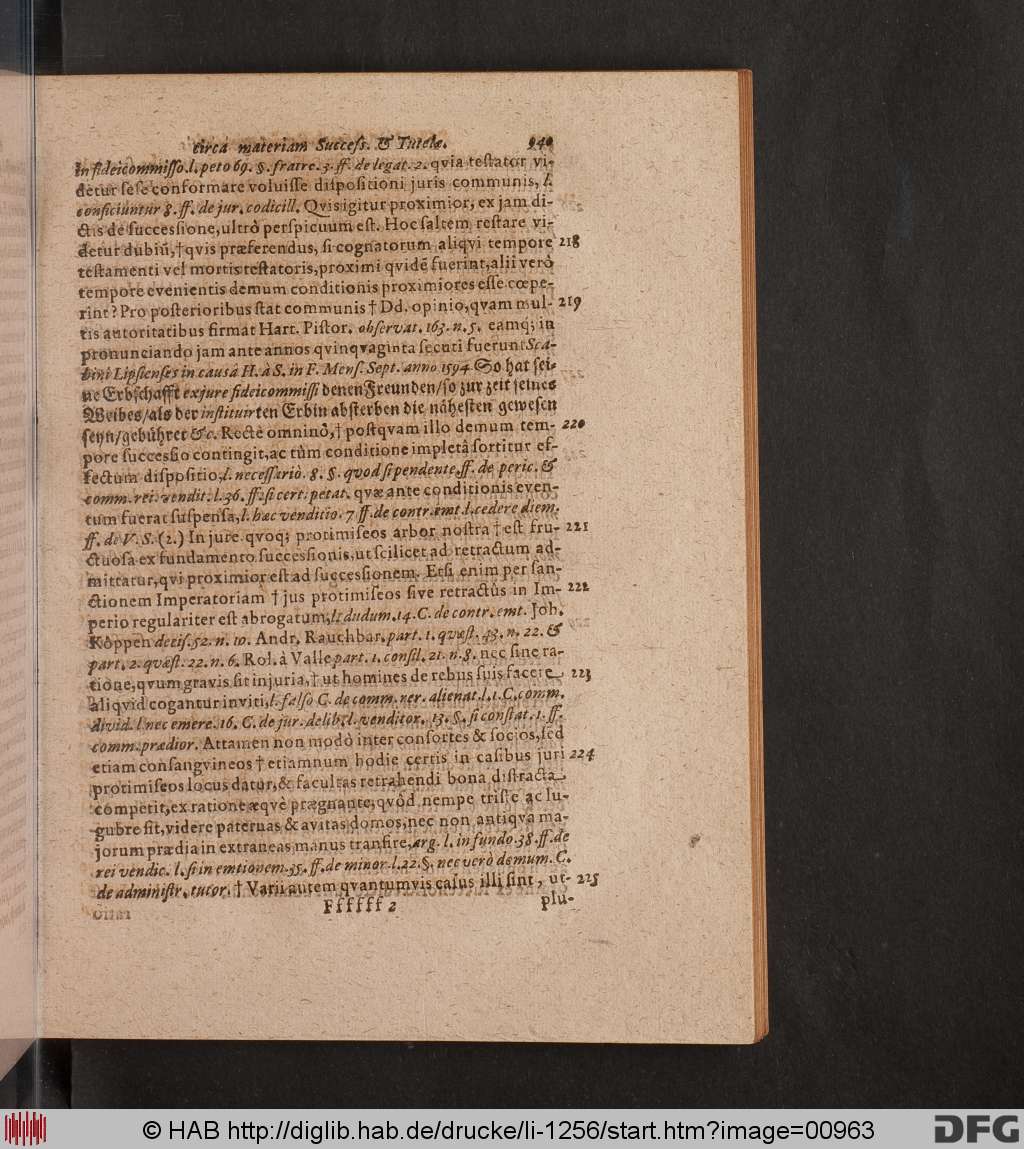 circa materiam Success. & Tutelæ. 949
in fideicommisso. l. peto 69. §. fratre. 3. ff. de legat. 2. qvia testator vi-
detur sese conformare voluisse dispositioni juris communis, l.
conficiuntur 8. ff. de jur. codicill. Qvis igitur proximior, ex jam di-
ctis de successione, ultrò perspicuum est. Hoc saltem restare vi-
detur dubiũ, † qvis præferendus, si cognatorum aliqvi tempore 218
testamenti vel mortis testatoris, proximi qvidẽ fuerint, alii verò
tempore evenientis demum conditionis proximiores esse cœpe-
rint? Pro posterioribus stat communis † Dd. opinio, qvam mul- 219
tis autoritatibus firmat Hart. Pistor. observat. 163. n. 5. eamq; in
pronunciando jam ante annos qvinqvaginta secuti fuerunt Sca-
bini Lipsienses in causâ H. à S. in F. Mens. Sept. anno 1594 So hat sei-
ne Erbschafft ex jure fideicommissi denen Freunden/ so zur zeit seines
Weibes/ als der instituirten Erbin absterben die nähesten gewesen
seyn/ gebühret &c. Rectè omninò, † postqvam illo demum tem- 220
pore successio contingit, ac tùm conditione impletâ sortitur ef-
fectum dispositio, l. necessariò. 8. §. quod si pendente. ff. de peric. &
comm. rei. vendit. l. 36. ff. si cert. petat. qvæ ante conditionis even-
tum fuerat suspensa, l. hæc venditio. 7 ff. de contr. emt. l. cedere diem.
ff. de V. S. (2.) In jure qvoq; protimiseos arbor nostra † est fru- 221
ctuosa ex fundamento successionis, ut scilicet ad retractum ad-
mittatur, qvi proximior est ad successionem. Etsi enim per san-
ctionem Imperatoriam † jus protimiseos sive retractûs in Im- 222
perio regulariter est abrogatum, l. dudum. 14. C. de contr. emt. Joh.
Köppen decis. 52. n. 10. Andr. Rauchbar. part. 1. quæst. 43. n. 22. &
part. 2. quæst. 22. n. 6. Rol. à Valle part. 1. consil. 21. n. 8. nec sine ra-
tione, qvum gravis sit injuria, † ut homines de rebus suis facere 223
aliqvid cogantur inviti, l. falso C. de comm. rer. alienat. l. 1. C. comm.
divid. l. nec emere. 16. C. de jur. delib. l. venditor. 13. §. si constat. 1. ff.
comm. prædior. Attamen non modò inter consortes & socios, sed
etiam consangvineos † etiamnum hodie certis in casibus juri 224
protimiseos locus datur, & facultas retrahendi bona distracta
competit, ex ratione æqvè prægnante, qvòd nempe triste ac lu-
gubre sit, videre paternas & avitas domos, nec non antiqva ma-
jorum prædia in extraneas manus transire, arg. l. in fundo. 38. ff. de
rei vendic. l. si in emtionem. 35. ff. de minor. l. 22. §. nec verò demum. C.
de administr. tutor. † Varii autem qvantumvis casus illi sint, ut- 225
Ffffff 2 plu-
© HAB http://diglib.hab.de/drucke/li-1256/start.htm?image=00963
DFG